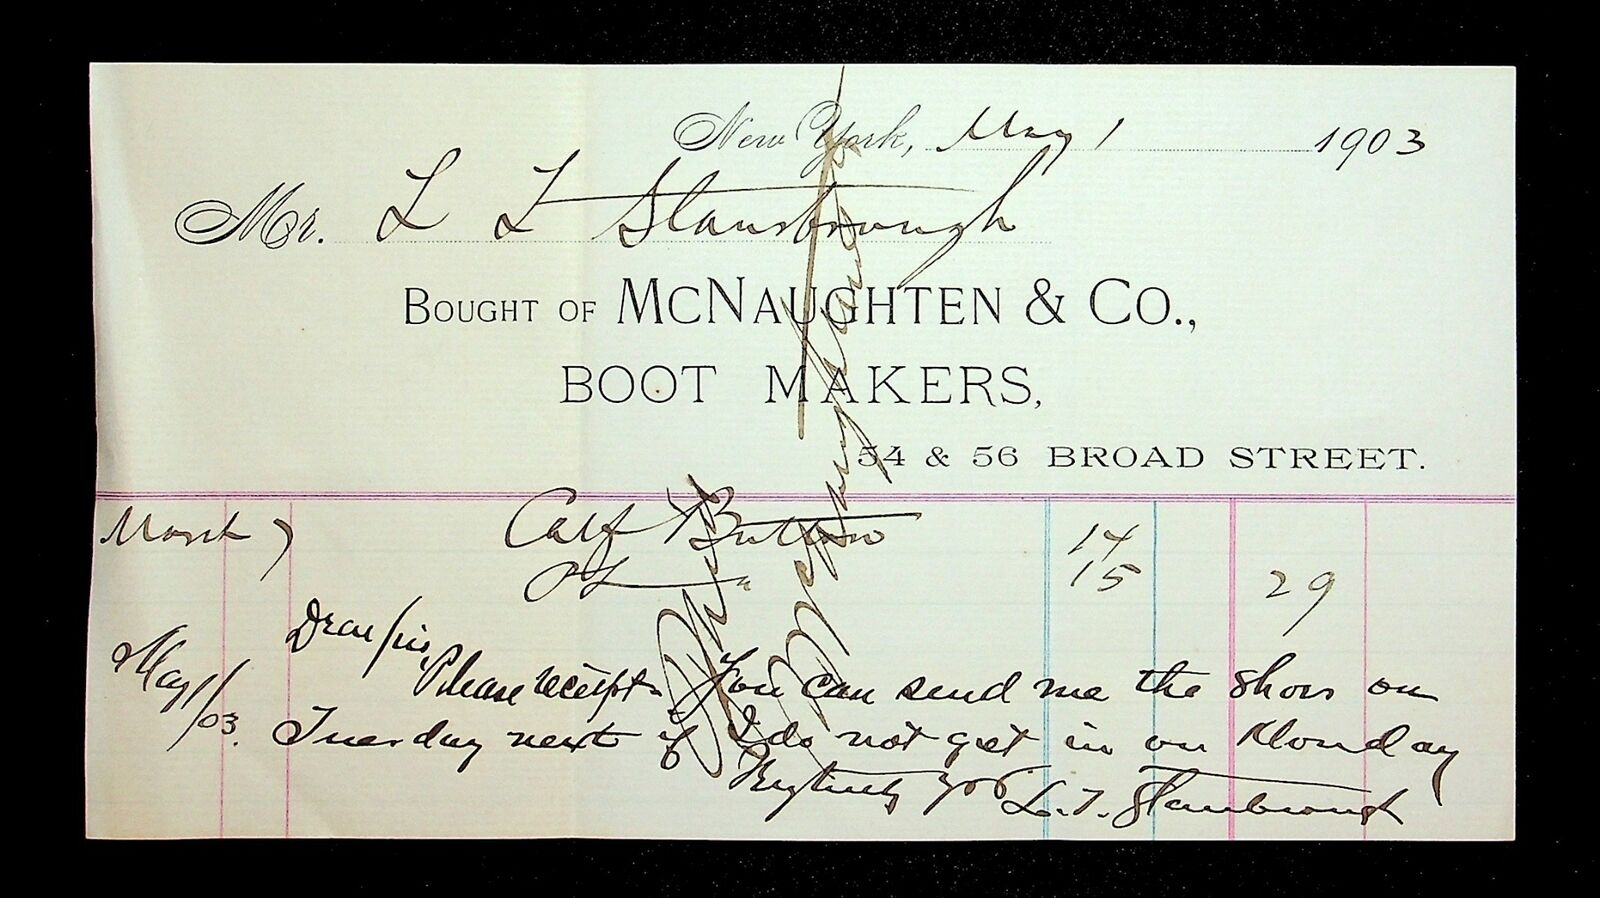 New York, May 1 1903
Mr. L T Stansbrough
BOUGHT OF MCNAUGHTEN & CO.,
BOOT MAKERS,
54 & 56 BROAD STREET.
March 7 Calf Button 14
" 15 29
May 1/03. Dear Sir,
Please receipt. You can send me the shoes on
Tuesday next if I do not get in on Monday
L. T. Stansbrough